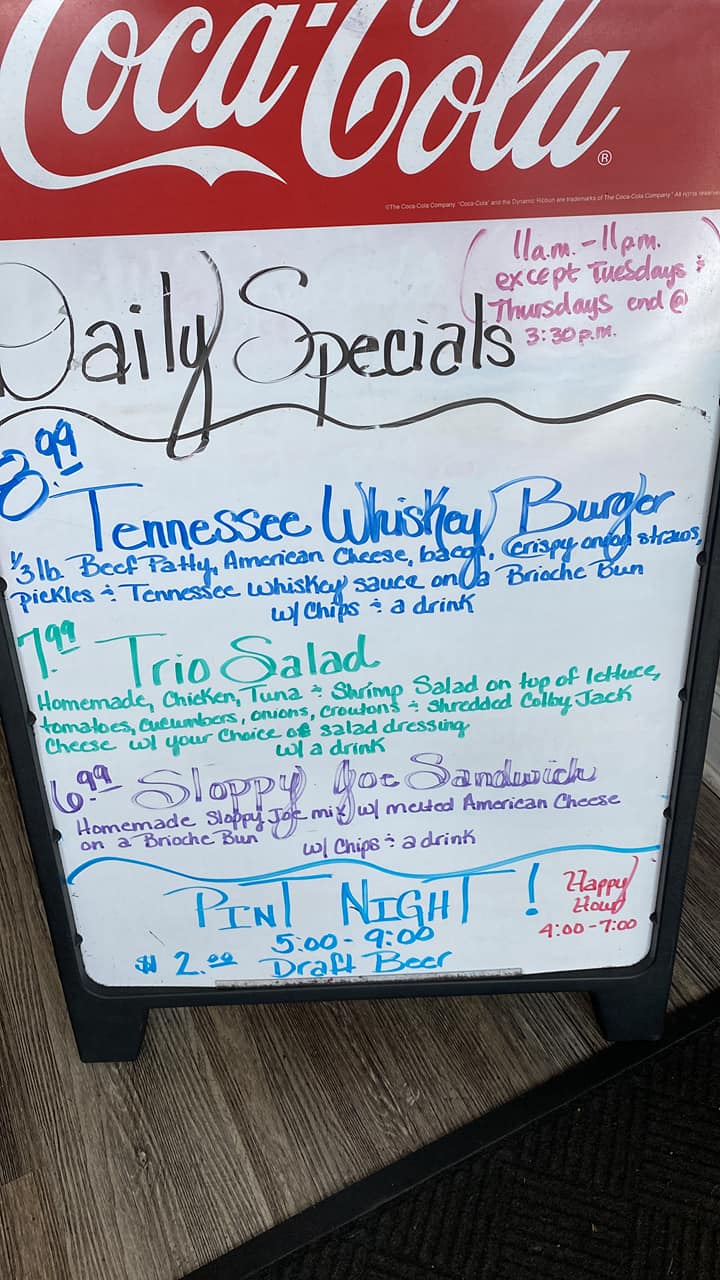 Coca-Cola
®
©The Coca-Cola Company. "Coca-Cola" and the Dynamic Ribbon are trademarks of The Coca-Cola Company. All rights reserved
11a.m. - 11p.m.
except Tuesdays &
Thursdays end @
3:30 p.m.
Daily Specials
8.99
Tennessee Whiskey Burger
1/3 lb. Beef Patty, American Cheese, bacon, crispy onion straws,
pickles & Tennessee Whiskey sauce on a Brioche Bun
w/ Chips & a drink
7.99
Trio Salad
Homemade, Chicken, Tuna & Shrimp Salad on top of lettuce,
tomatoes, cucumbers, onions, croutons & shredded Colby Jack
Cheese w/ your choice of salad dressing
w/ a drink
6.99
Sloppy Joe Sandwich
Homemade Sloppy Joe mix w/ melted American Cheese
on a Brioche Bun w/ Chips & a drink
PINT NIGHT!
5:00 - 9:00
$2.00 Draft Beer
Happy
Hour
4:00 - 7:00